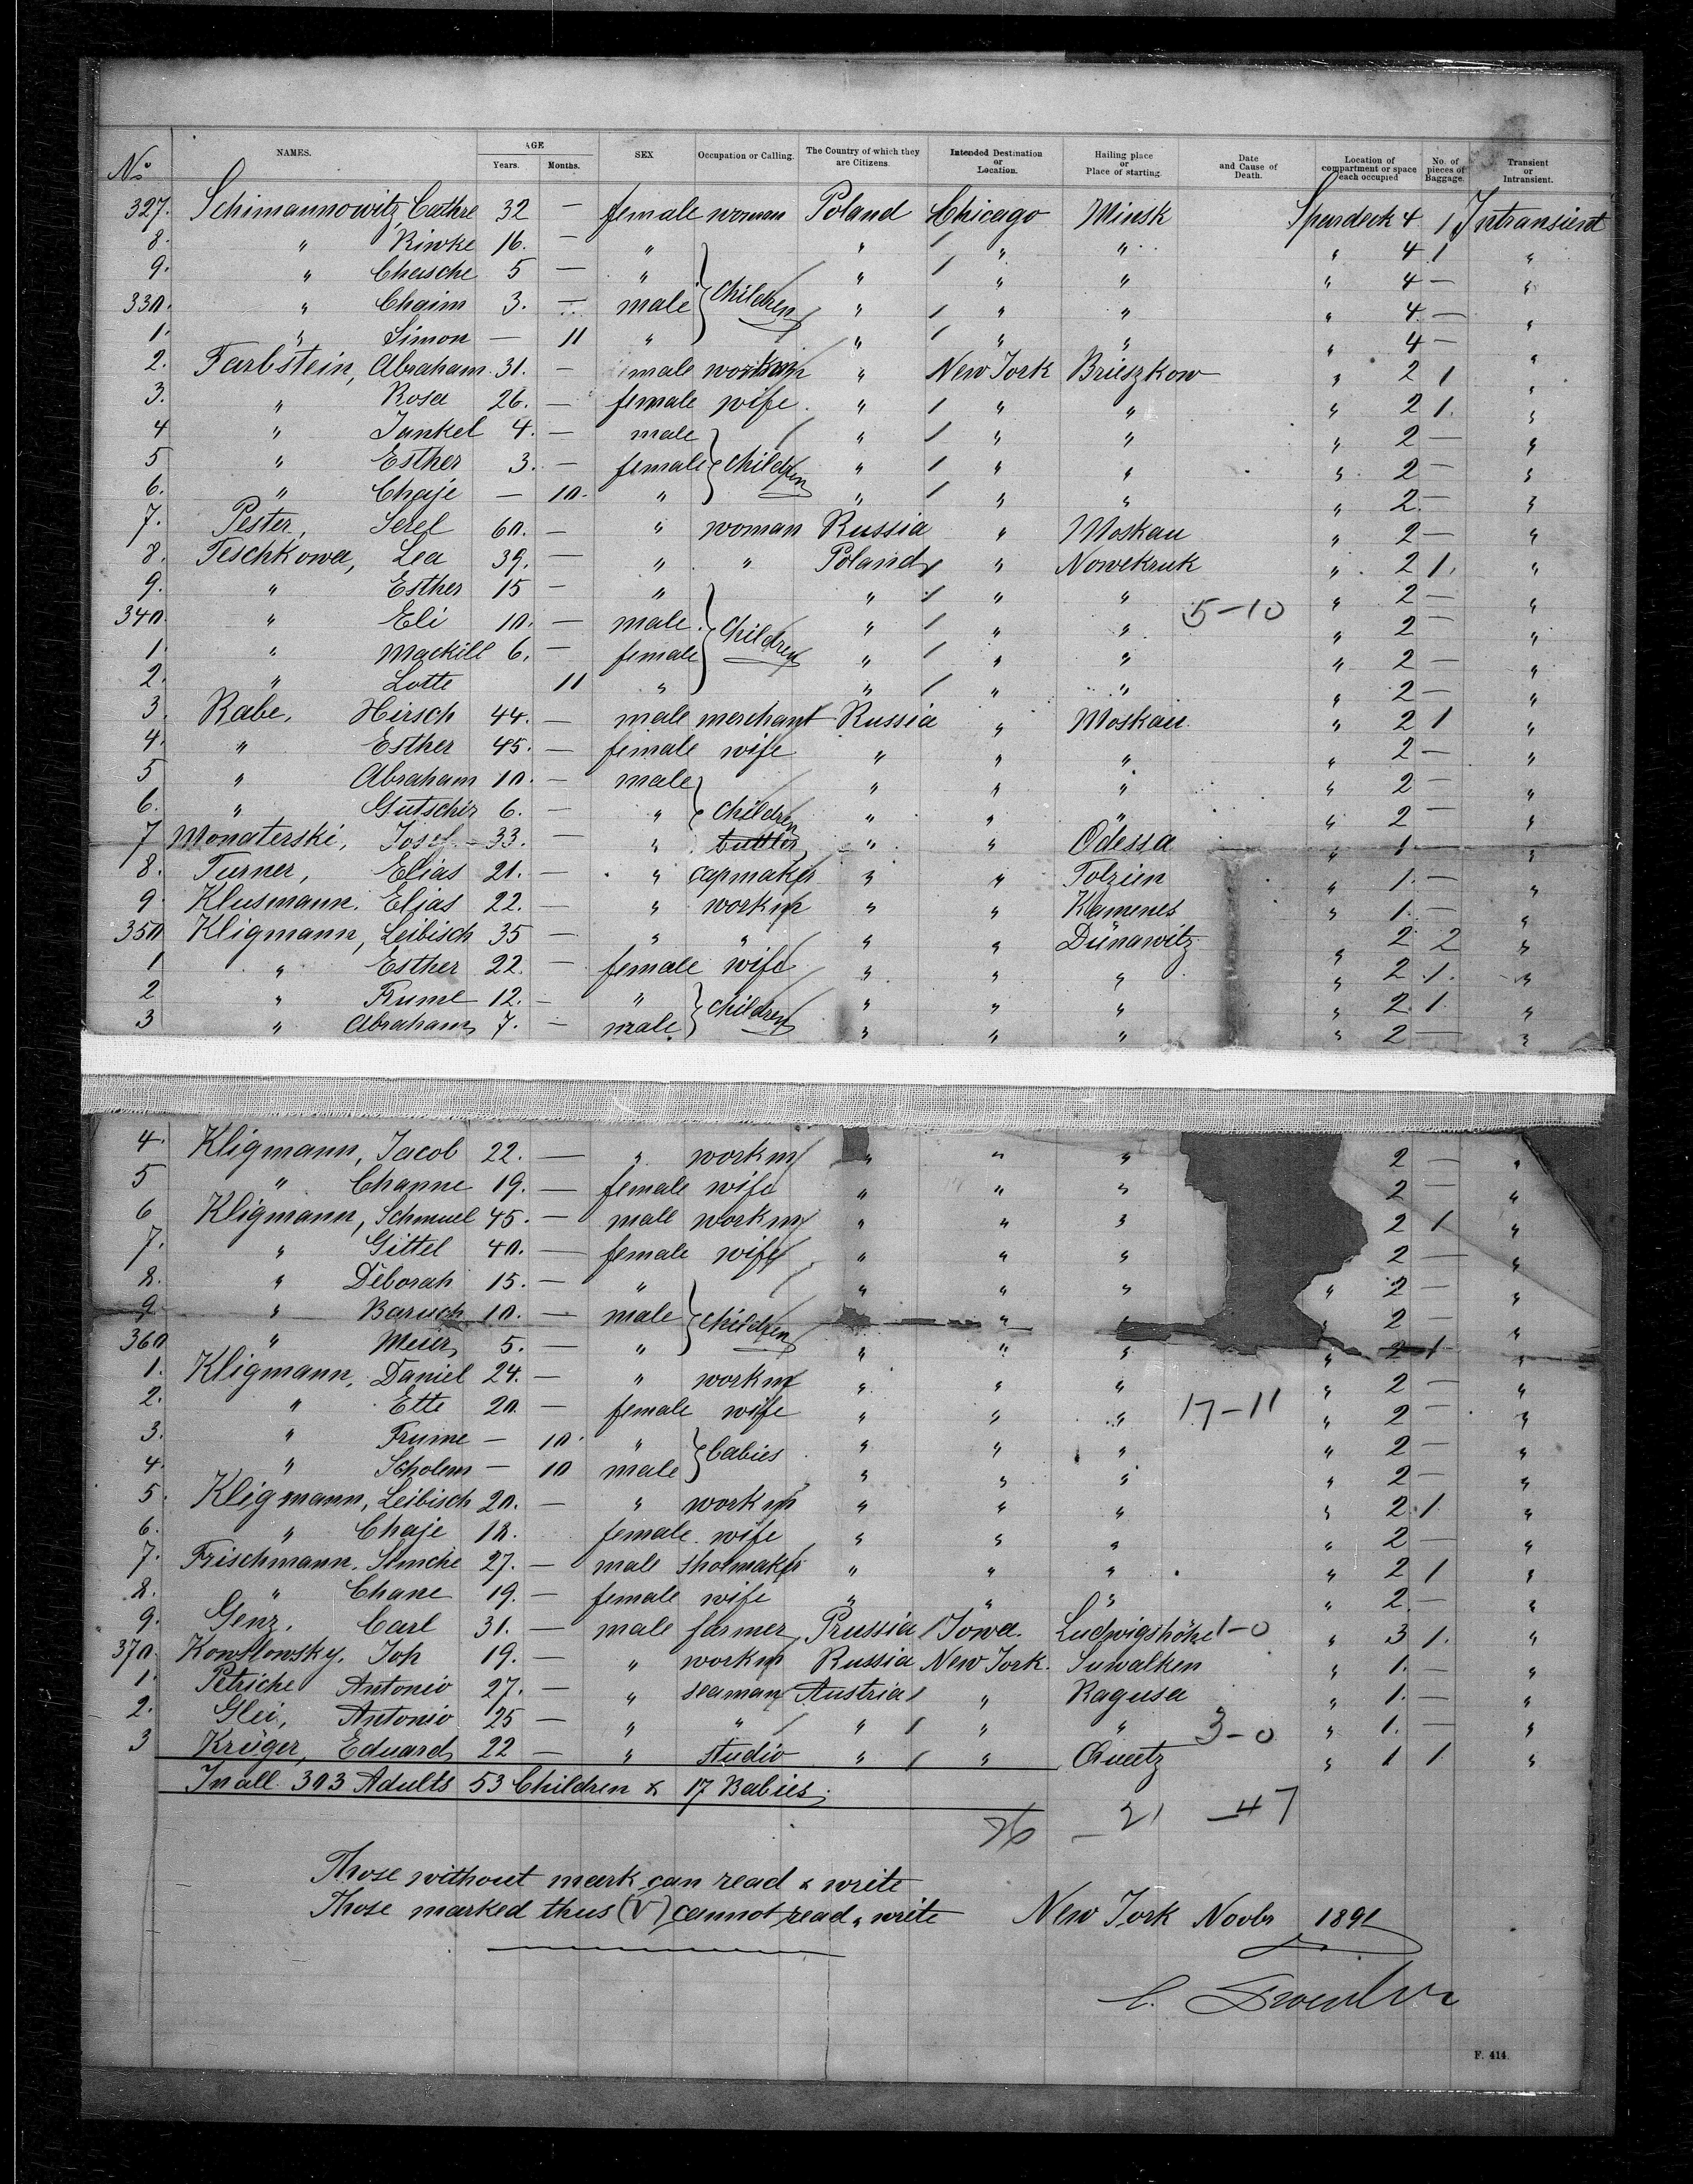 No. NAMES. AGE Years. Months. SEX Occupation or Calling. The Country of which they are Citizens. Intended Destination or Location. Hailing place or Place of starting. Date and Cause of Death. Location of compartment or space each occupied No. of pieces of Baggage. Transient or Intransient.
327. Schimannowitz, Cathre 32 — female woman Poland Chicago Minsk Spardeck 4 1 Intransient
8. " Riwke 16. — " " / " " " 4 1 "
9. " Chasche 5 — " " / " " " 4 — "
330. " Chaim 3. — male } Children " / " " " 4 — "
1. " Simon — 11 " " / " " " 4 — "
2. Farbstein, Abraham 31. — male workm " New York Brieszkow " 2 1 "
3. " Rosa 26. — female wife " / " " " 2 1. "
4 " Jankel 4. — male " / " " " 2 — "
5 " Esther 3. — female } Children " / " " " 2 — "
6. " Chaje — 10. " " / " " " 2. — "
7. Pester, Serel 60. — " woman Russia " Moskau " 2 — "
8. Teschkowa, Lea 39. — " " Poland / " Nowekruk " 2 1. "
9. " Esther 15 — " " / " " 5-10 " 2 — "
340. " Eli 10. — male } Children " / " " " 2 — "
1. " Mackill 6. — female " / " " " 2 — "
2. " Lotte 11 " " / " " " 2 — "
3. Rabe, Hirsch 44. — male merchant Russia " Moskau " 2 1 "
4. " Esther 45. — female wife " " " 2 — "
5 " Abraham 10. — male " " " " 2 — "
6. " Gutschir 6. — " } Children " " " " 2 — "
7 Monaterski, Josef 33. — " buttler " " Odessa " 1 — "
8. Turner, Elias 21. — " capmaker " " Tolzim " 1. — "
9. Klusmann, Elias 22. — " workm " " Kamenes " 1. — "
350 Kligmann, Leibisch 35 — " " " " Dünawitz " 2 2 "
1 " Esther 22. — female wife " " " " 2 1. "
2 " Frume 12. — " } Children " " " " 2 1. "
3 " Abraham 7. — male " " " " 2 — "
4. Kligmann, Jacob 22. — " workm " " " 2 — "
5 " Channe 19. — female wife " " " 2 — "
6 Kligmann, Schmuel 45. — male workm " " " 2 1 "
7. " Gittel 40. — female wife " " " 2 — "
8. " Deborah 15. — " " " " " 2 — "
9 " Baruch 10. — male } Children " " 2 — "
360 " Meier 5. — " " " " " 2 1 "
1. Kligmann, Daniel 24. — " workm " " " " 2 — "
2. " Ette 20 — female wife " " " 17-11 " 2 — "
3. " Frume — 10. " } babies " " " " 2 — "
4. " Scholem — 10 male " " " " 2 — "
5. Kligmann, Leibisch 20. — " workm " " " " 2 1. "
6. " Chaje 18. female wife " " " " 2 — "
7. Frischmann, Simche 27. — male shoemaker " " " " 2 1 "
8. " Chane 19. — female wife " " " " 2. — "
9. Genz, Carl 31. — male farmer Prussia / Iowa. Ludwigshöhe 1-0 " 3 1. "
370. Kowslowsky, Joh 19. — " workm Russia New York. Suwalken " 1. — "
1. Petriche Antonio 27. — " seaman Austria / " Ragusa " 1. — "
2. Glei, Antonio 25 — " " " / " " 3-0 " 1. — "
3 Krüger, Eduard 22 — " studio " / " " 1 1 "
In all 303 Adults 53 Children & 17 Babies.
76 — 21 — 47
Those without mark can read & write
Those marked thus (V) cannot read & write New York Novbr 1891
F. 414.